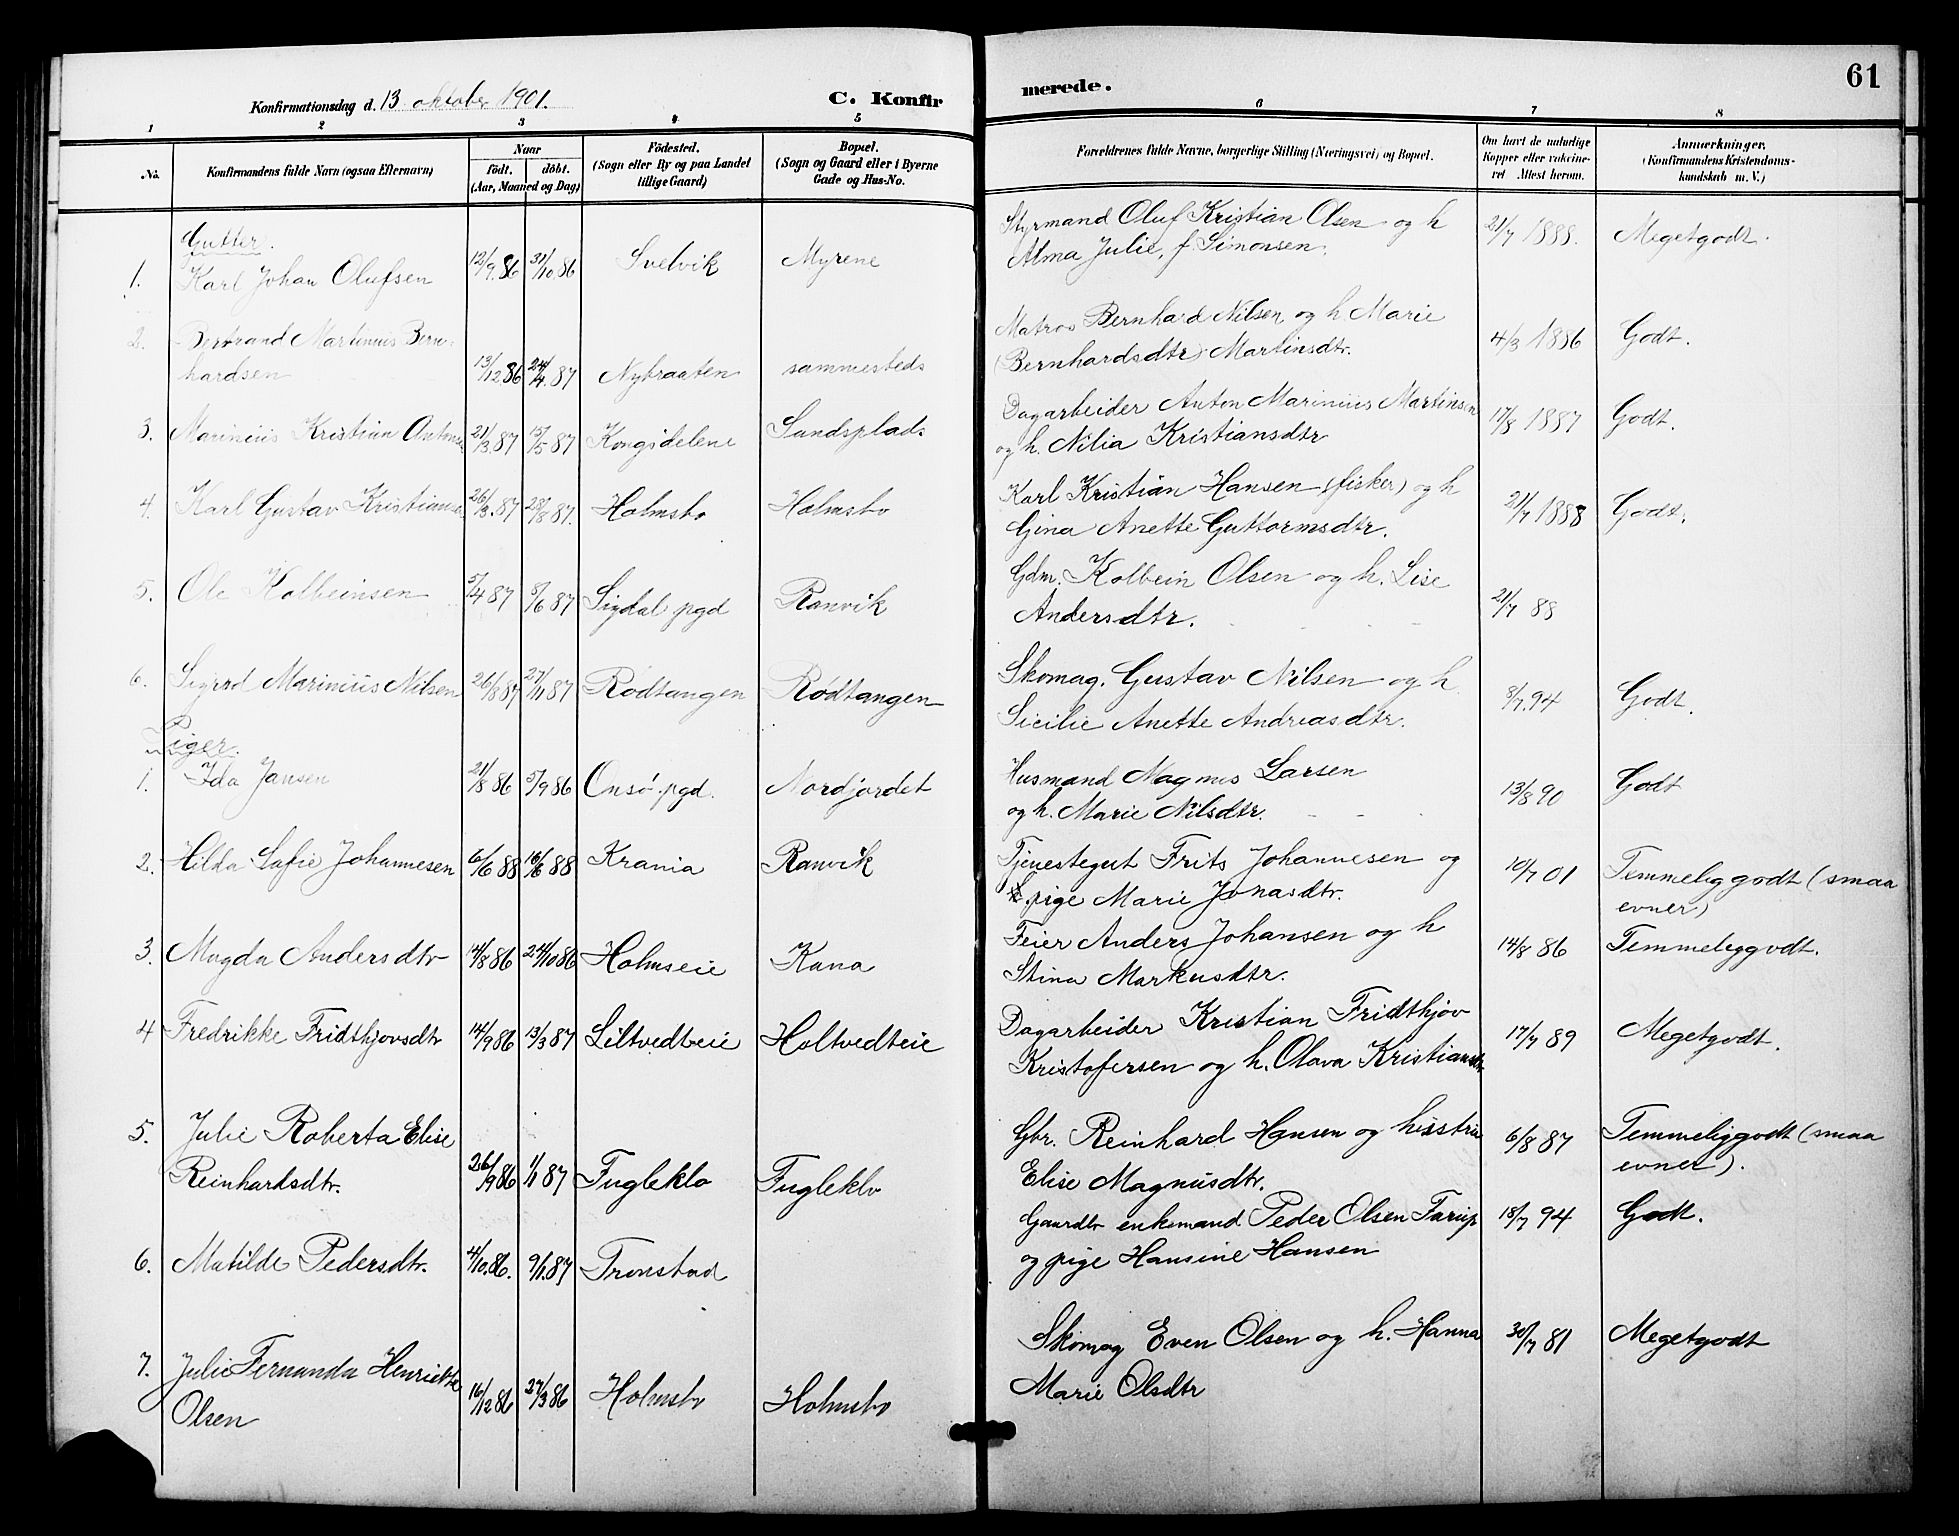 61
Konfirmationsdag d. 13 oktober 1901. C. Konfir merede.
1 2 3 4 5 6 7 8
No. Konfirmandens fulde Navn (ogsaa Efternavn) Naar født. døbt. (Aar, Maaned og Dag) Födested. (Sogn eller By og paa Landet tillige Gaard) Bopæl. (Sogn og Gaard eller i Byerne Gade og Hus-No. Forældrenes fulde Navne, borgerlige Stilling (Næringsvei) og Bopæl. Om havt de naturlige Kopper eller vaccineret Attest herom. Anmærkninger. (Konfirmandens Kristendomskundskab m. V.)
Gutter.
1. Karl Johan Olufsen 12/9.86 31/10.86 Svelvik Myrene Styrmand Oluf Kristian Olsen og h
Alma Julie, f. Simonsen. 21/7 1888. Megetgodt.
2. Bertrand Martinius Bern-
hardsen 13/12 86 24/4.87 Nybraaten sammesteds Matros Bernhard Nilsen og h Marie
(Bernhardsdtr) Martinsdtr. 4/3 1886 Godt.
3. Marinius Kristian Antons 21/3.87 15/5 87 Kongsdelene Sandsplads Dagarbeider Anton Marinius Martinsen
og h. Nilia Kristiansdtr 17/8 1887 Godt.
4. Karl Gustav Kristians 26/3.87 28/8 87. Holmsbo Holmsbo Karl Kristian Hansen (fisker) og h
Gina Anette Guttormsdtr. 21/7 1888 Godt.
5. Ole Kolbeinsen 5/4 87 5/6 87 Sigdal pgd Ranvik Gdm. Kolbein Olsen og h. Lise
Andersdtr. 21/7 88
6. Sigurd Marinius Nilsen 26/8 87 27/11 87 Rødtangen Rødtangen Skomag. Gustav Nilsen og h
Sicilie Anette Andreasdtr. 8/7.94 Godt.
Piger.
1. Ida Jansen 21/8 86 5/9 86 Onsø pgd. Nordjordet Husmand Magnus Larsen
og h. Marie Nilsdtr. 13/8 90 Godt
2. Hilda Safie Johannesen 6/6 88 16/6 88 Krania Ranvik Tjenestegut Frits Johannesen og
pige Marie Jonasdtr. 10/7 01 Temmeliggodt (smaa
evner)
3. Magda Andersdtr 14/8 86 24/10 86 Holmseie Kana Feier Anders Johansen og h
Stina Markusdtr. 14/8 86 Temmeliggodt.
4 Fredrikke Fridthjovsdtr 14/9 86 13/3 87 Liltvedteie Holtvedteie Dagarbeider Kristian Fridthjov
Kristofersen og h. Olava Kristiansdtr 17/7 89 Megetgodt.
5. Julie Roberta Elise
Reinhardsdtr. 26/9 86 1/1 87 Fugleklo Fugleklo Gbr. Reinhard Hansen og hisstrue
Elise Magnusdtr. 6/8 87 Temmeliggodt (smaa
evner).
6. Matilde Pedersdtr. 4/10.86. 9/1.87 Tronstad Gaardbr enkemand Peder Olsen Tarup
og pige Hansine Hansen 18/7 94 Godt.
7. Julie Fernanda Henriette
Olsen 16/12 86 27/3 86 Holmsbo Holmsbo Skomag Even Olsen og h. Hanna
Marie Olsdtr 30/7 81 Megetgodt